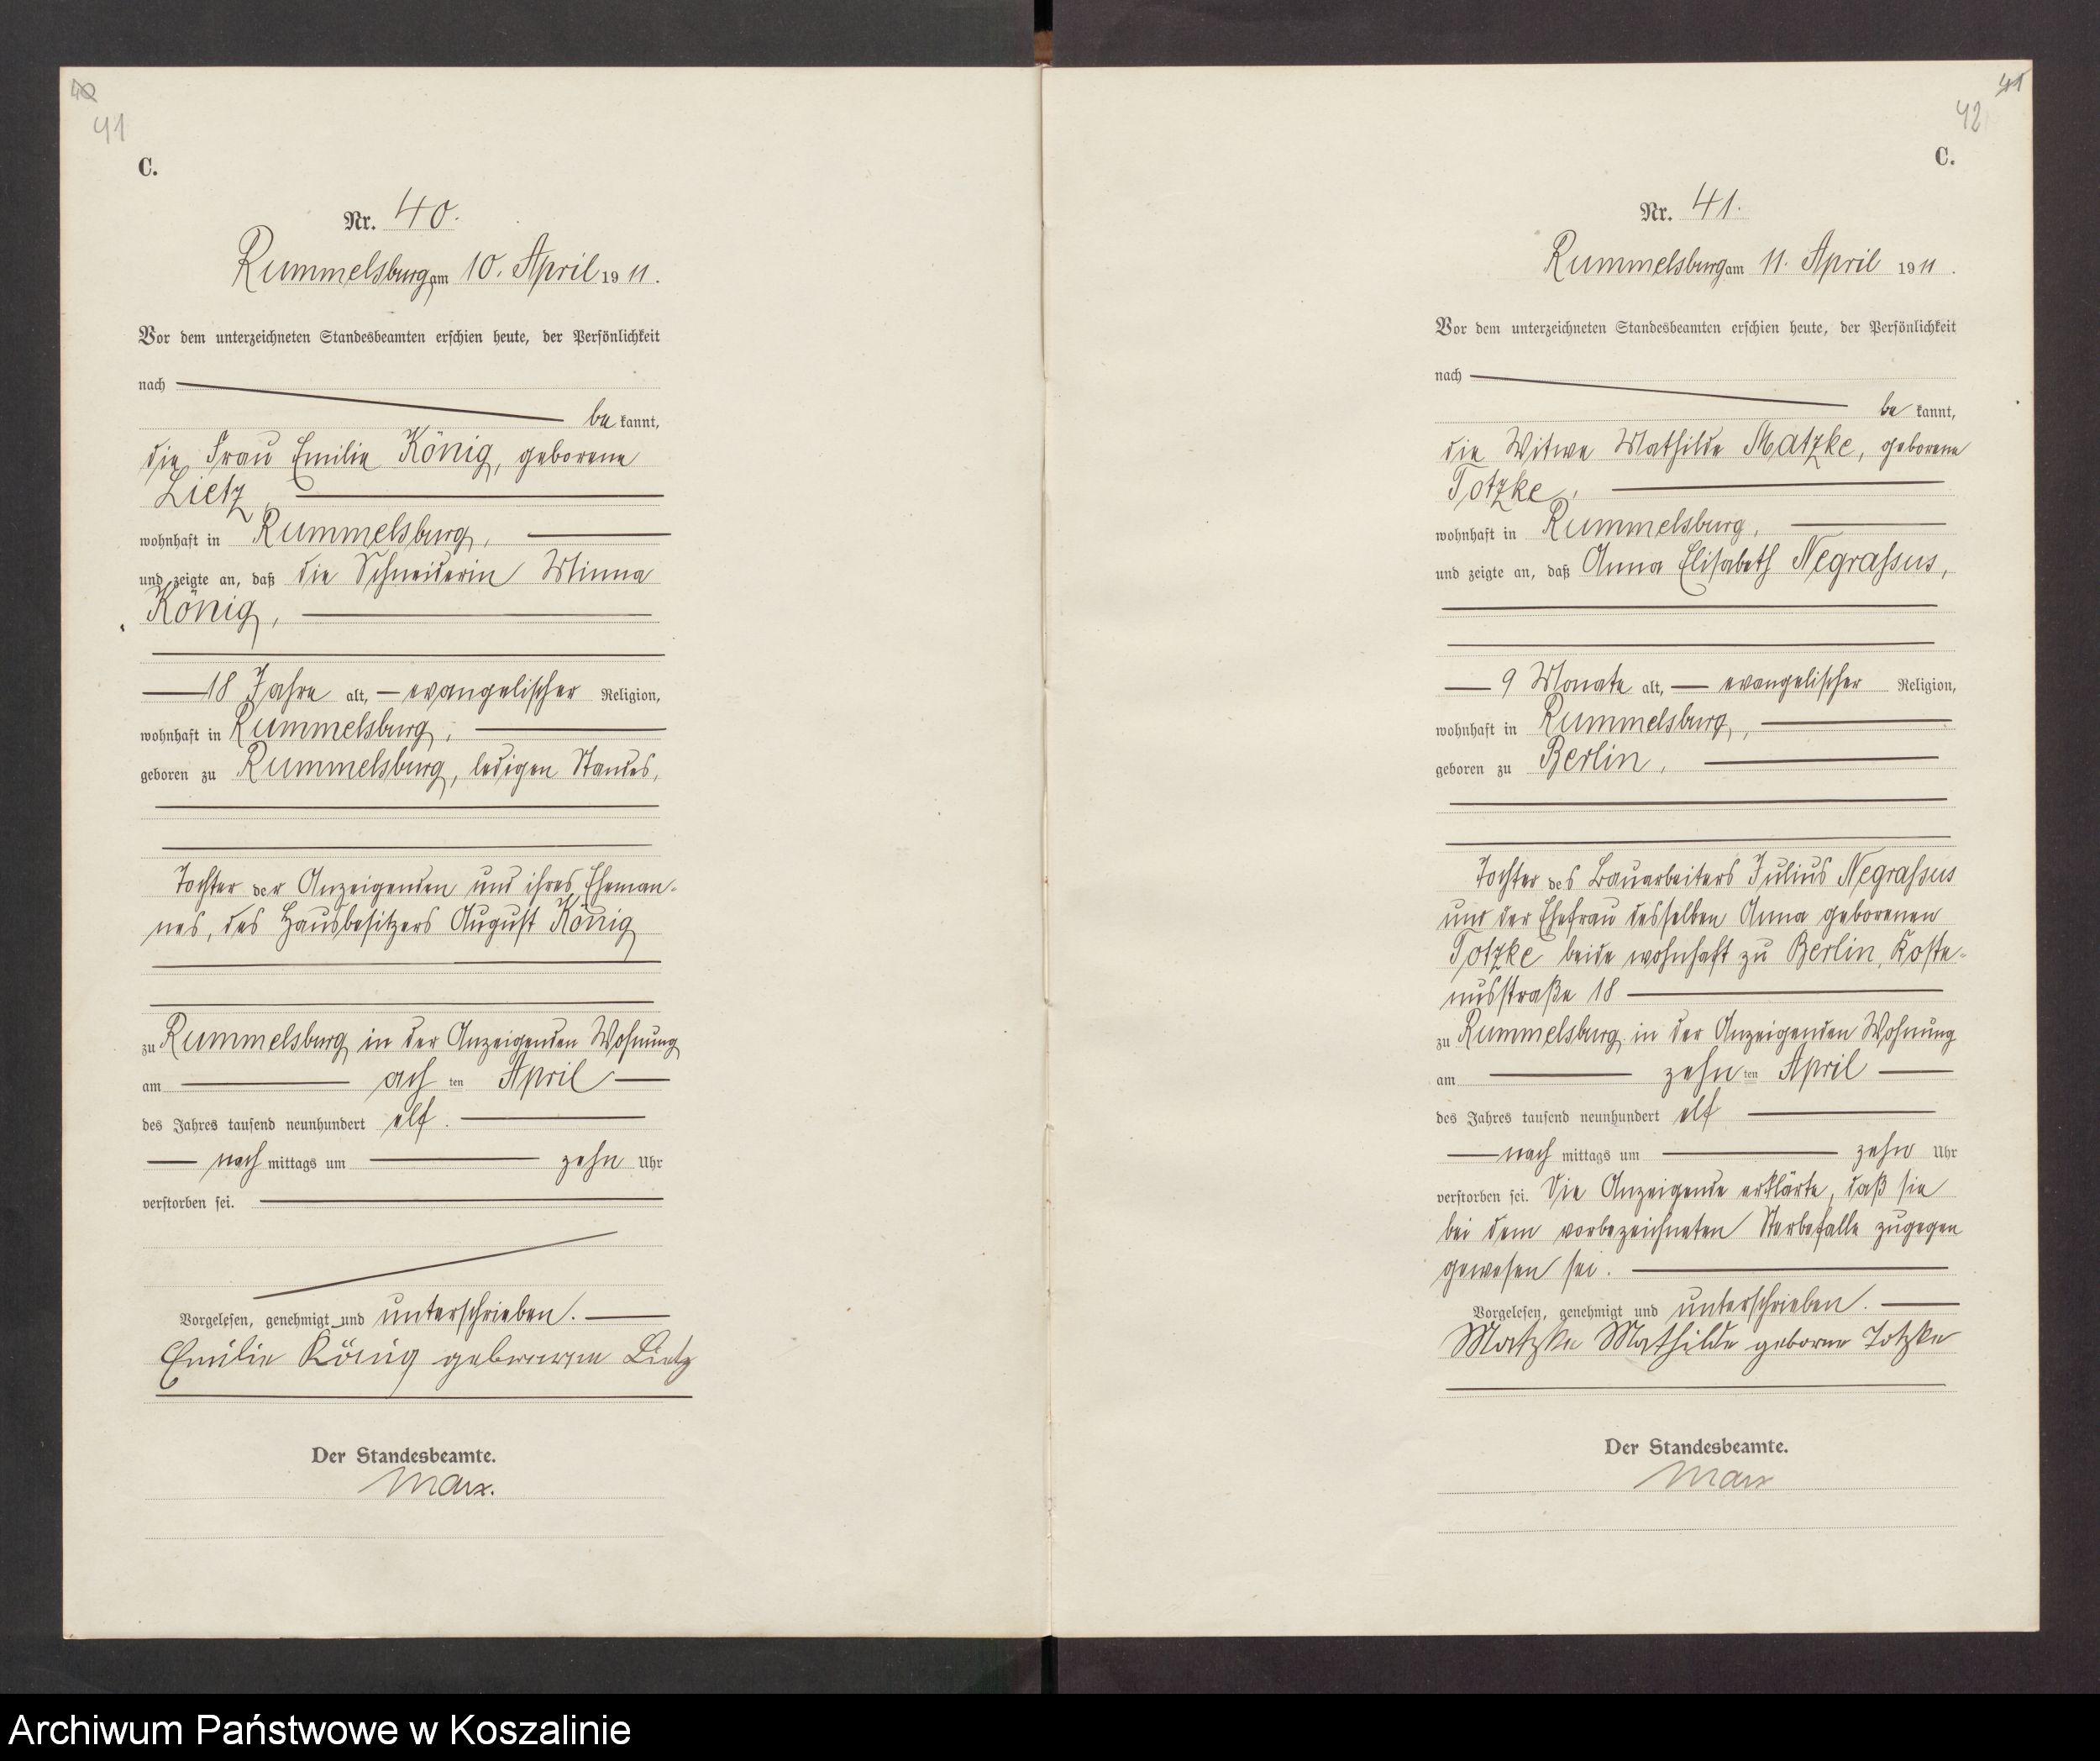 40
41
C.
Nr. 40.
Rummelsburg am 10. April 1911.
Vor dem unterzeichneten Standesbeamten erschien heute, der Persönlichkeit
nach
be kannt,
die Frau Emilie König, geborene
Lietz,
wohnhaft in Rummelsburg,
und zeigte an, daß die Schneiderin Minna
König,
18 Jahre alt, evangelischer Religion,
wohnhaft in Rummelsburg,
geboren zu Rummelsburg, ledigen Standes,
Tochter der Anzeigenden und ihres Eheman-
nes, des Hausbesitzers August König
zu Rummelsburg in der Anzeigenden Wohnung
am ach ten April
des Jahres tausend neunhundert elf.
nach mittags um zehn Uhr
verstorben sei.
Vorgelesen, genehmigt und unterschrieben.
Emilie König geborene Lietz
Der Standesbeamte.
Marx.
41
42
C.
Nr. 41.
Rummelsburg am 11. April 1911.
Vor dem unterzeichneten Standesbeamten erschien heute, der Persönlichkeit
nach
be kannt,
die Witwe Mathilde Matzke, geborene
Totzke,
wohnhaft in Rummelsburg,
und zeigte an, daß Anna Elisabeth Negrassus,
9 Monate alt, evangelischer Religion,
wohnhaft in Rummelsburg,
geboren zu Berlin,
Tochter des Bauarbeiters Julius Negrassus
und der Ehefrau desselben Anna geborenen
Totzke beide wohnhaft zu Berlin,
18
zu Rummelsburg in der Anzeigenden Wohnung
am zehn ten April
des Jahres tausend neunhundert elf
nach mittags um zehn Uhr
verstorben sei. Die Anzeigende erklärte, daß sie
bei dem vorbezeichneten Sterbefalle zugegen
gewesen sei.
Vorgelesen, genehmigt und unterschrieben.
Matzke Mathilde geborne Totzke
Der Standesbeamte.
Marx
Archiwum Państwowe w Koszalinie